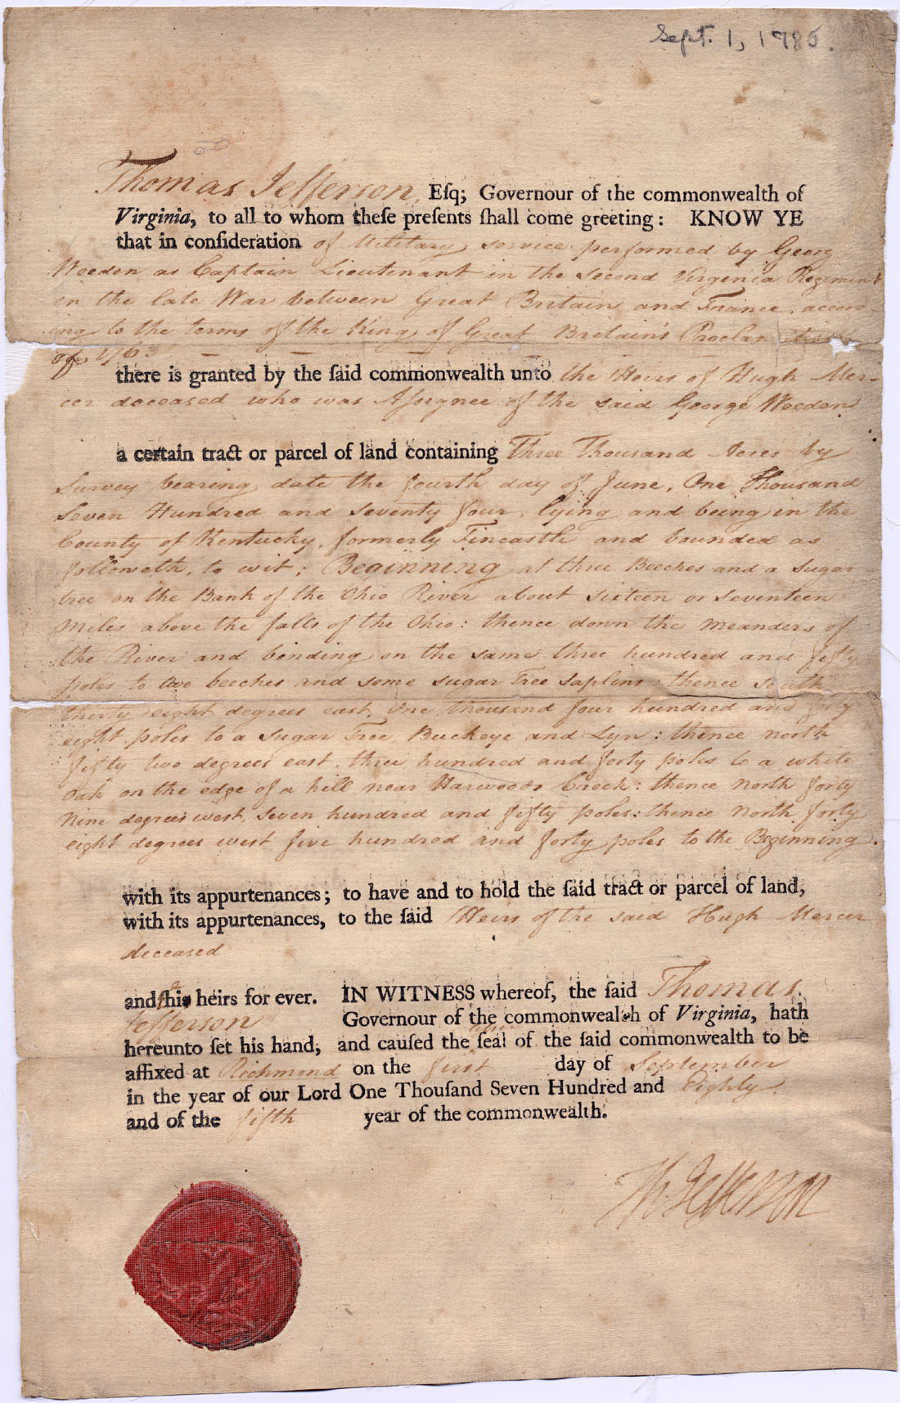 Sept. 1, 1780.
Thomas Jefferson, Eſq; Governour of the commonwealth of
Virginia, to all to whom theſe preſents ſhall come greeting: KNOW YE
that in conſideration of Military service performed by Georg
Weedon as Captain Lieutenant in the Second Virginia Regiment
in the late War between Great Britain and France, accord-
ing to the terms of the King of Great Britain's Proclamation
of 1763
there is granted by the ſaid commonwealth unto the Heirs of Hugh Mer-
cer deceased who was Aſsignee of the said George Weedon
a certain tract or parcel of land containing Three Thousand Acres by
Survey bearing date the fourth day of June, One Thousand
Seven Hundred and Seventy four, lying and being in the
County of Kentucky, formerly Fincastle and bounded as
followeth, to wit; Beginning at three Beeches and a Sugar
tree on the Bank of the Ohio River about sixteen or seventeen
Miles above the falls of the Ohio: thence down the meanders of
the River and binding on the same three hundred and fifty
poles to two beeches and some sugar Tree Saplins: thence South
thirty eight degrees east, One thousand four hundred and forty
eight poles to a Sugar Tree, Buckeye and Lyn: thence north
fifty two degrees east, three hundred and forty poles to a white
oak on the edge of a hill near Harwoods Creek: thence North forty
Nine degrees west, Seven hundred and fifty poles: thence North, forty
eight degrees west five hundred and forty poles to the Beginning.
with its appurtenances; to have and to hold the ſaid tract or parcel of land,
with its appurtenances, to the ſaid Heirs of the said Hugh Mercer
deceased
and his heirs for ever. IN WITNESS whereof, the ſaid Thomas
Jefferson Governour of the commonwealth of Virginia, hath
hereunto ſet his hand, and cauſed the ſeal of the ſaid commonwealth to be
affixed at Richmond on the first day of September
in the year of our Lord One Thouſand Seven Hundred and Eighty
and of the fifth year of the commonwealth.
Th: Jefferson